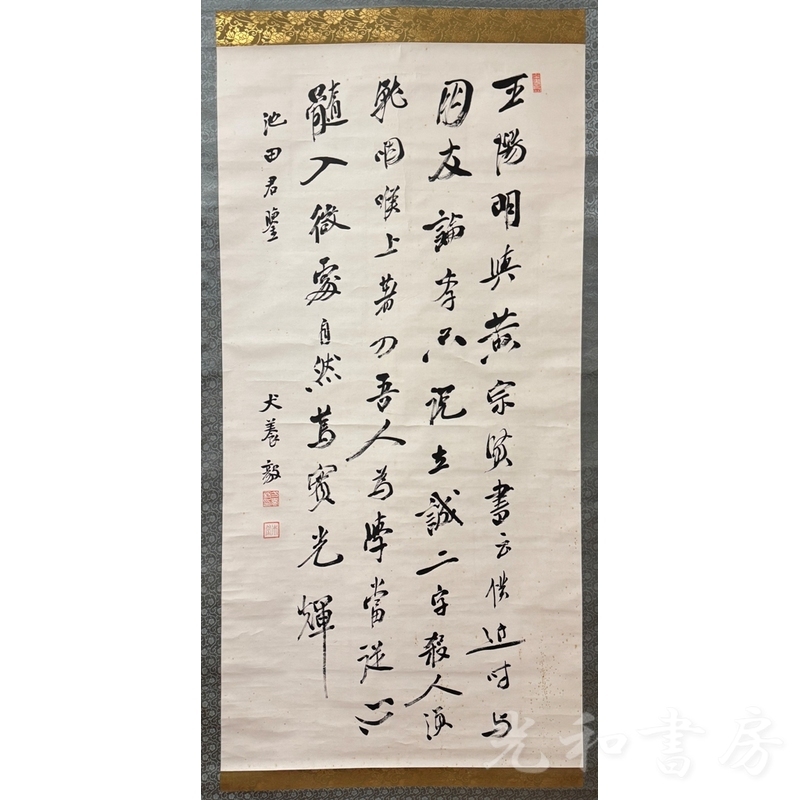 王陽明與黄宗賢書云僕近時与
朋友論学只説立誠二字殺人須
就咽喉上著刀吾人為學當從心
髓入微處自然篤實光輝
池田君鑒
犬養毅
光和書房